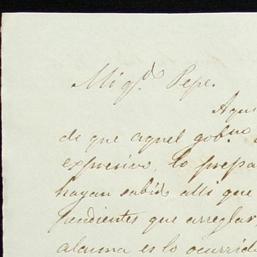 Mi q.d Pepe.
Agu
de que aquel gob.no
expresivo, lo prepa
hayan sabid allí que
pendientes que arreglar
alguna es lo ocurrid